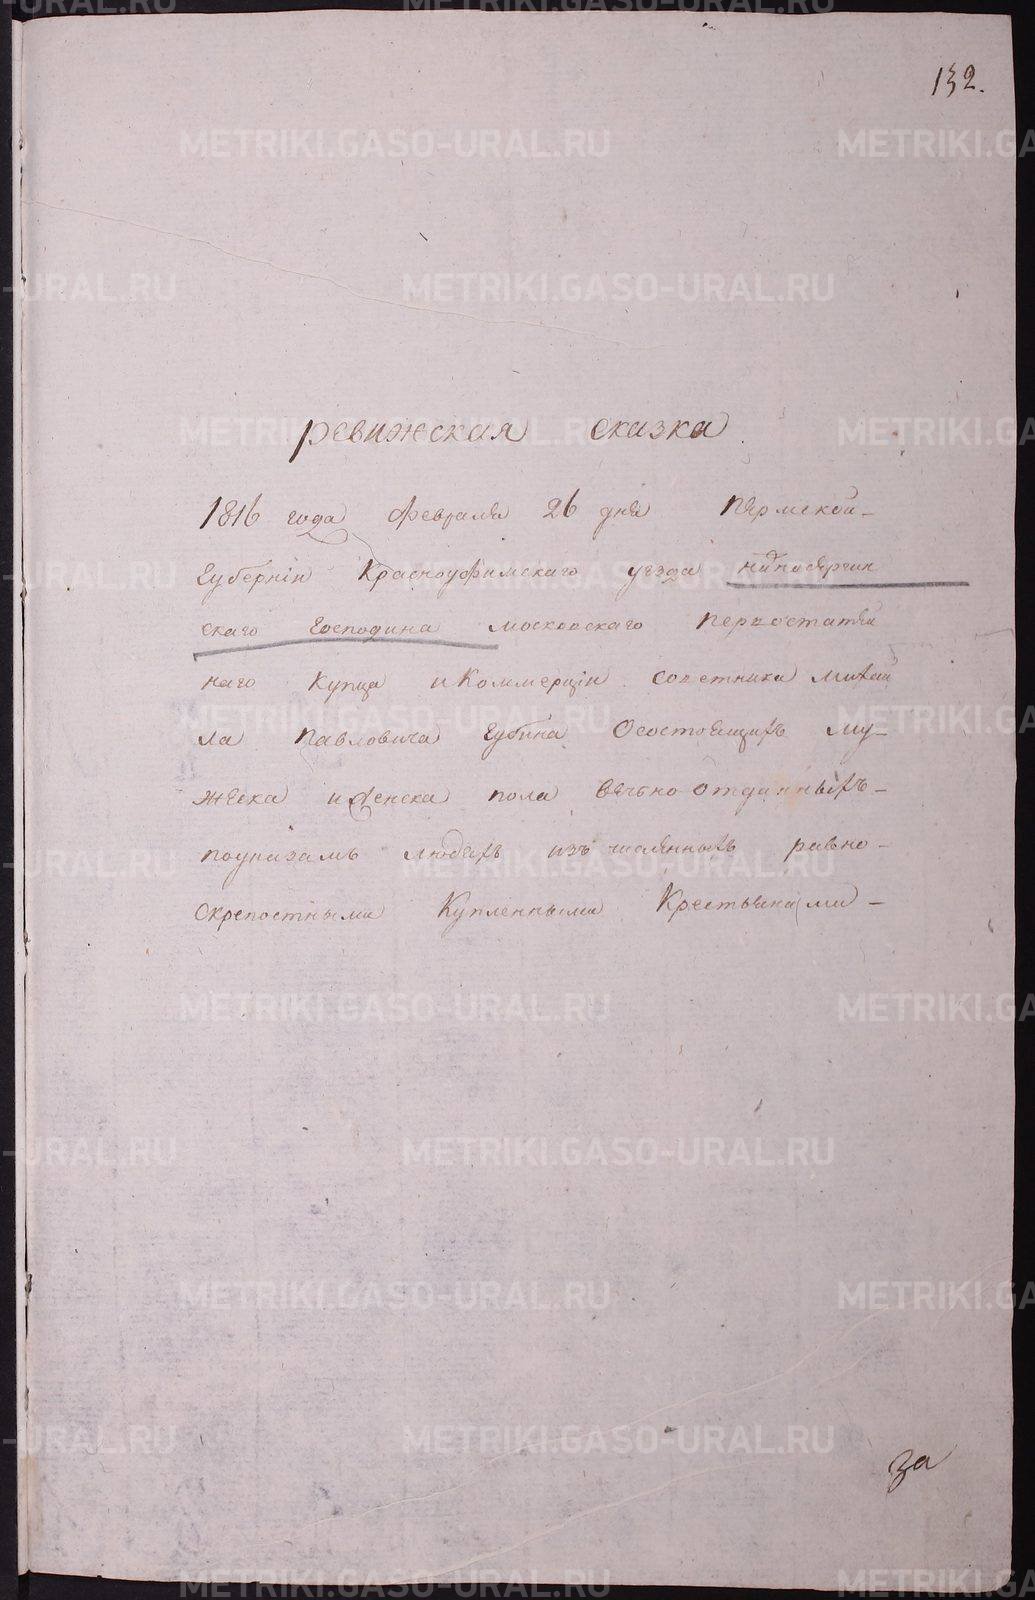 132.
ревижская сказка
1816 года февраля 26 дня Пермской-
Губернiи Красноуфимскаго уезда нижносергин
скаго Господина московскаго первостатей
наго купца и Коммерцiи советника михаи
ла Павловича Губина Осостоящихъ му-
жеска иженска пола вечьно отданныхъ-
поуказамъ людехъ изъ численныхъ равно-
скрепостными Купленными Крестьяна ми-
за
METRIKI.GASO-URAL.RU